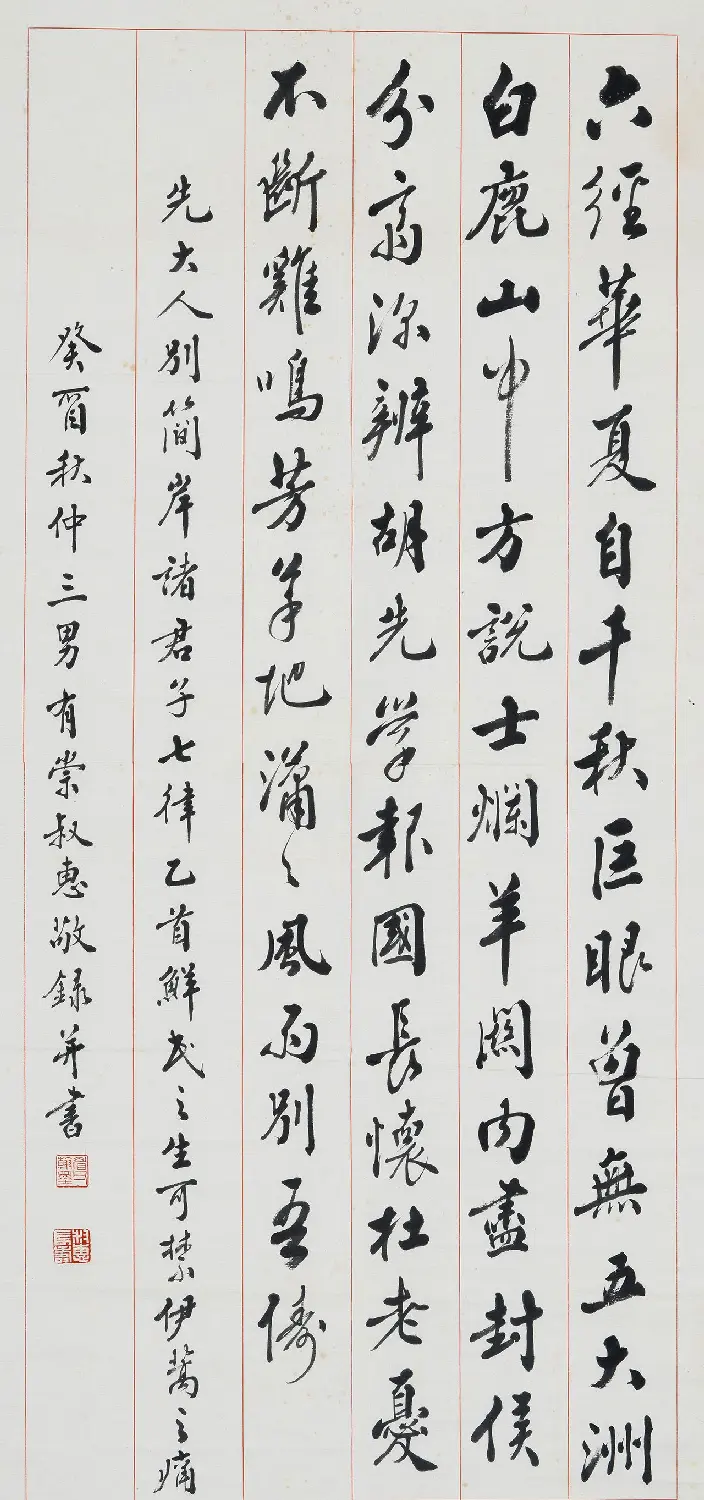 六經華夏自千秋巨眼曾無五大洲
白鹿山中方說士爛羊關内盡封侯
分齋深辨胡先學報國長懷杜老憂
不斷雞鳴芳草地瀟々風雨別吾儔
先大人別簡岸諸君子七律乙首鮮民之生可禁伊蒿之痛
癸酉秋仲三男有崇叔惠敬録并書